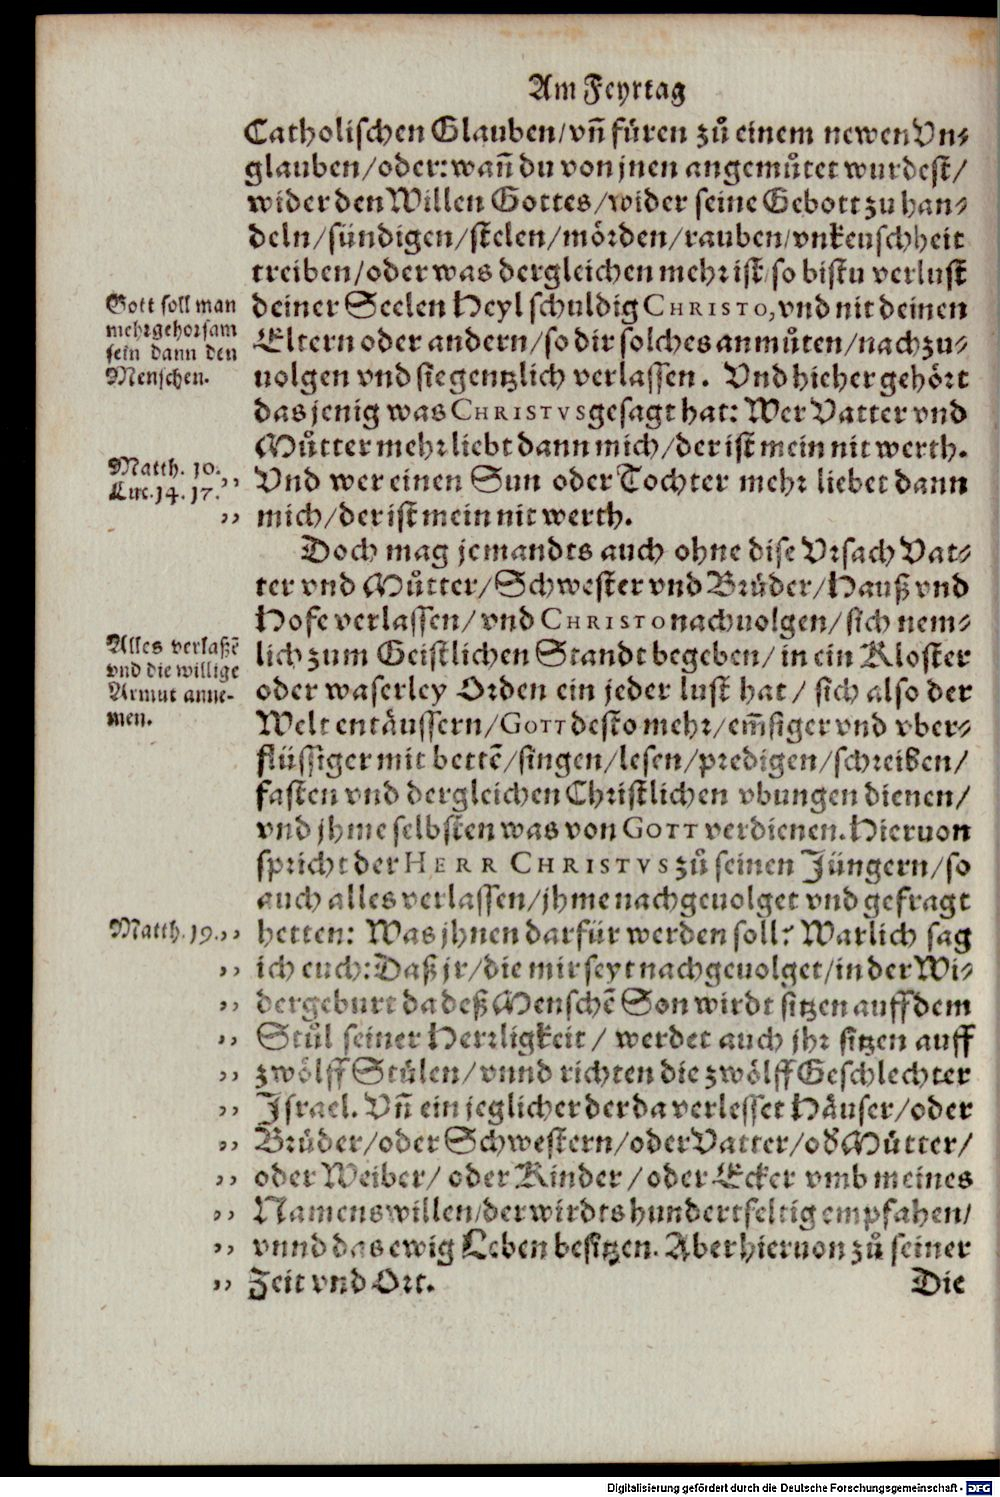 Am Feyrtag
Catholischen Glauben/vn̄ füren zů einem newen Vn⸗
glauben/oder: wañ du von jnen angemůtet wurdest/
wider den Willen Gottes/wider seine Gebott zu han⸗
deln/sündigen/stelen/mörden/rauben/vnkeuschheit
treiben/oder was dergleichen mehr ist/so bistu verlust
deiner Seelen Heyl schuldig CHRISTO, vnd nit deinen
Eltern oder andern/so dir solches anmůten/nachzu⸗
uolgen vnd sie gentzlich verlassen. Vnd hieher gehört
das jenig was CHRISTVS gesagt hat: Wer Vatter vnd
Můtter mehr liebt dann mich/der ist mein nit werth.
Vnd wer einen Sun oder Tochter mehr liebet dann
mich/der ist mein nit werth.
Gott soll man
mehr gehorsam
sein dann den
Menschen.
Matth. 10. ,,
Luc. 14. 17. ,,
Doch mag jemandts auch ohne dise Vrsach Vat⸗
ter vnd Můtter/Schwester vnd Brůder/Hauß vnd
Hofe verlassen/vnd CHRISTO nachuolgen/sich nem⸗
lich zum Geistlichen Standt begeben/in ein Kloster
oder waserley Orden ein jeder lust hat/ sich also der
Welt entäussern/GOTT desto mehr/em̄siger vnd vber⸗
flüssiger mit bettē/singen/lesen/predigen/schreiben/
fasten vnd dergleichen Christlichen vbungen dienen/
vnd jhme selbsten was von GOTT verdienen. Hieruon
spricht der HERR CHRISTVS zů seinen Jüngern/so
auch alles verlassen/jhme nachgeuolget vnd gefragt
Alles verlaßē
vnd die willige
Armut anne-
men.
Matth. 19. ,, hetten: Was jhnen darfür werden soll? Warlich sag
,, ich euch: Daß jr/die mir seyt nachgeuolget/in der Wi⸗
,, dergeburt da deß Menschē Son wirdt sitzen auff dem
,, Stůl seiner Herrligkeit/ werdet auch jhr sitzen auff
,, zwölff Stůlen/vnnd richten die zwölff Geschlechter
,, Israel. Vn̄ ein jeglicher der da verlesset Häuser/oder
,, Brůder/oder Schwestern/oder Vatter/od̕ Můtter/
,, oder Weiber/ oder Kinder/oder Ecker vmb meines
,, Namens willen/der wirdts hundertfeltig empfahen/
,, vnnd das ewig Leben besitzen. Aber hieruon zů seiner
,, Zeit vnd Ort.
Die
Digitalisierung gefördert durch die Deutsche Forschungsgemeinschaft - DFG